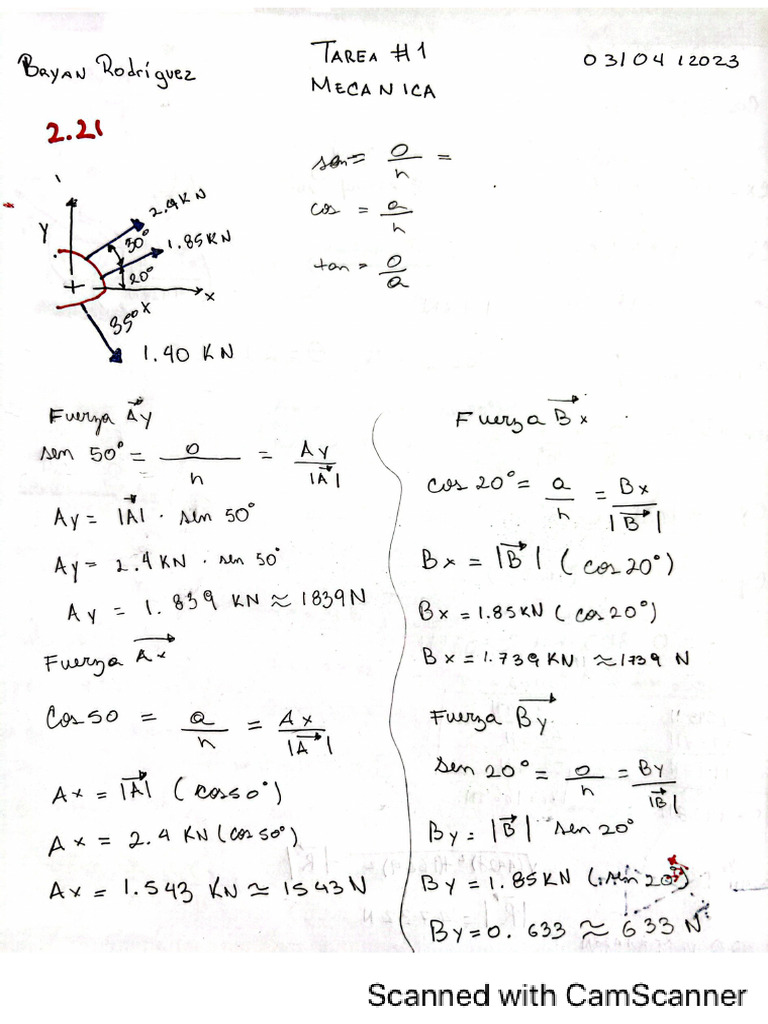 BAYAN Rodríguez
TAREA #1
MECANICA
03/04/2023
2.21
sen = O/h =
cos = a/h
tan = O/a
y
2.4 KN
30°
1.85 KN
20°
x
35° x
1.40 KN
Fuerza A⃗y
sen 50° = o/h = Ay/|A⃗|
Ay = |A⃗| · sen 50°
Ay = 2.4 KN · sen 50°
Ay = 1.839 KN ≈ 1839N
Fuerza A⃗x
Cos 50 = a/h = Ax/|A⃗|
Ax = |A⃗| (cos50°)
Ax = 2.4 KN (cos 50°)
Ax = 1.543 KN ≈ 1543N
Fuerza B⃗x
cos 20° = a/h = Bx/|B⃗|
Bx = |B⃗| (cos20°)
Bx = 1.85KN (cos20°)
Bx = 1.739 KN ≈ 1739 N
Fuerza B⃗y
sen 20° = o/h = By/|B⃗|
By = |B⃗| sen 20°
By = 1.85KN (sen 20°)
By = 0.633 ≈ 633 N
Scanned with CamScanner